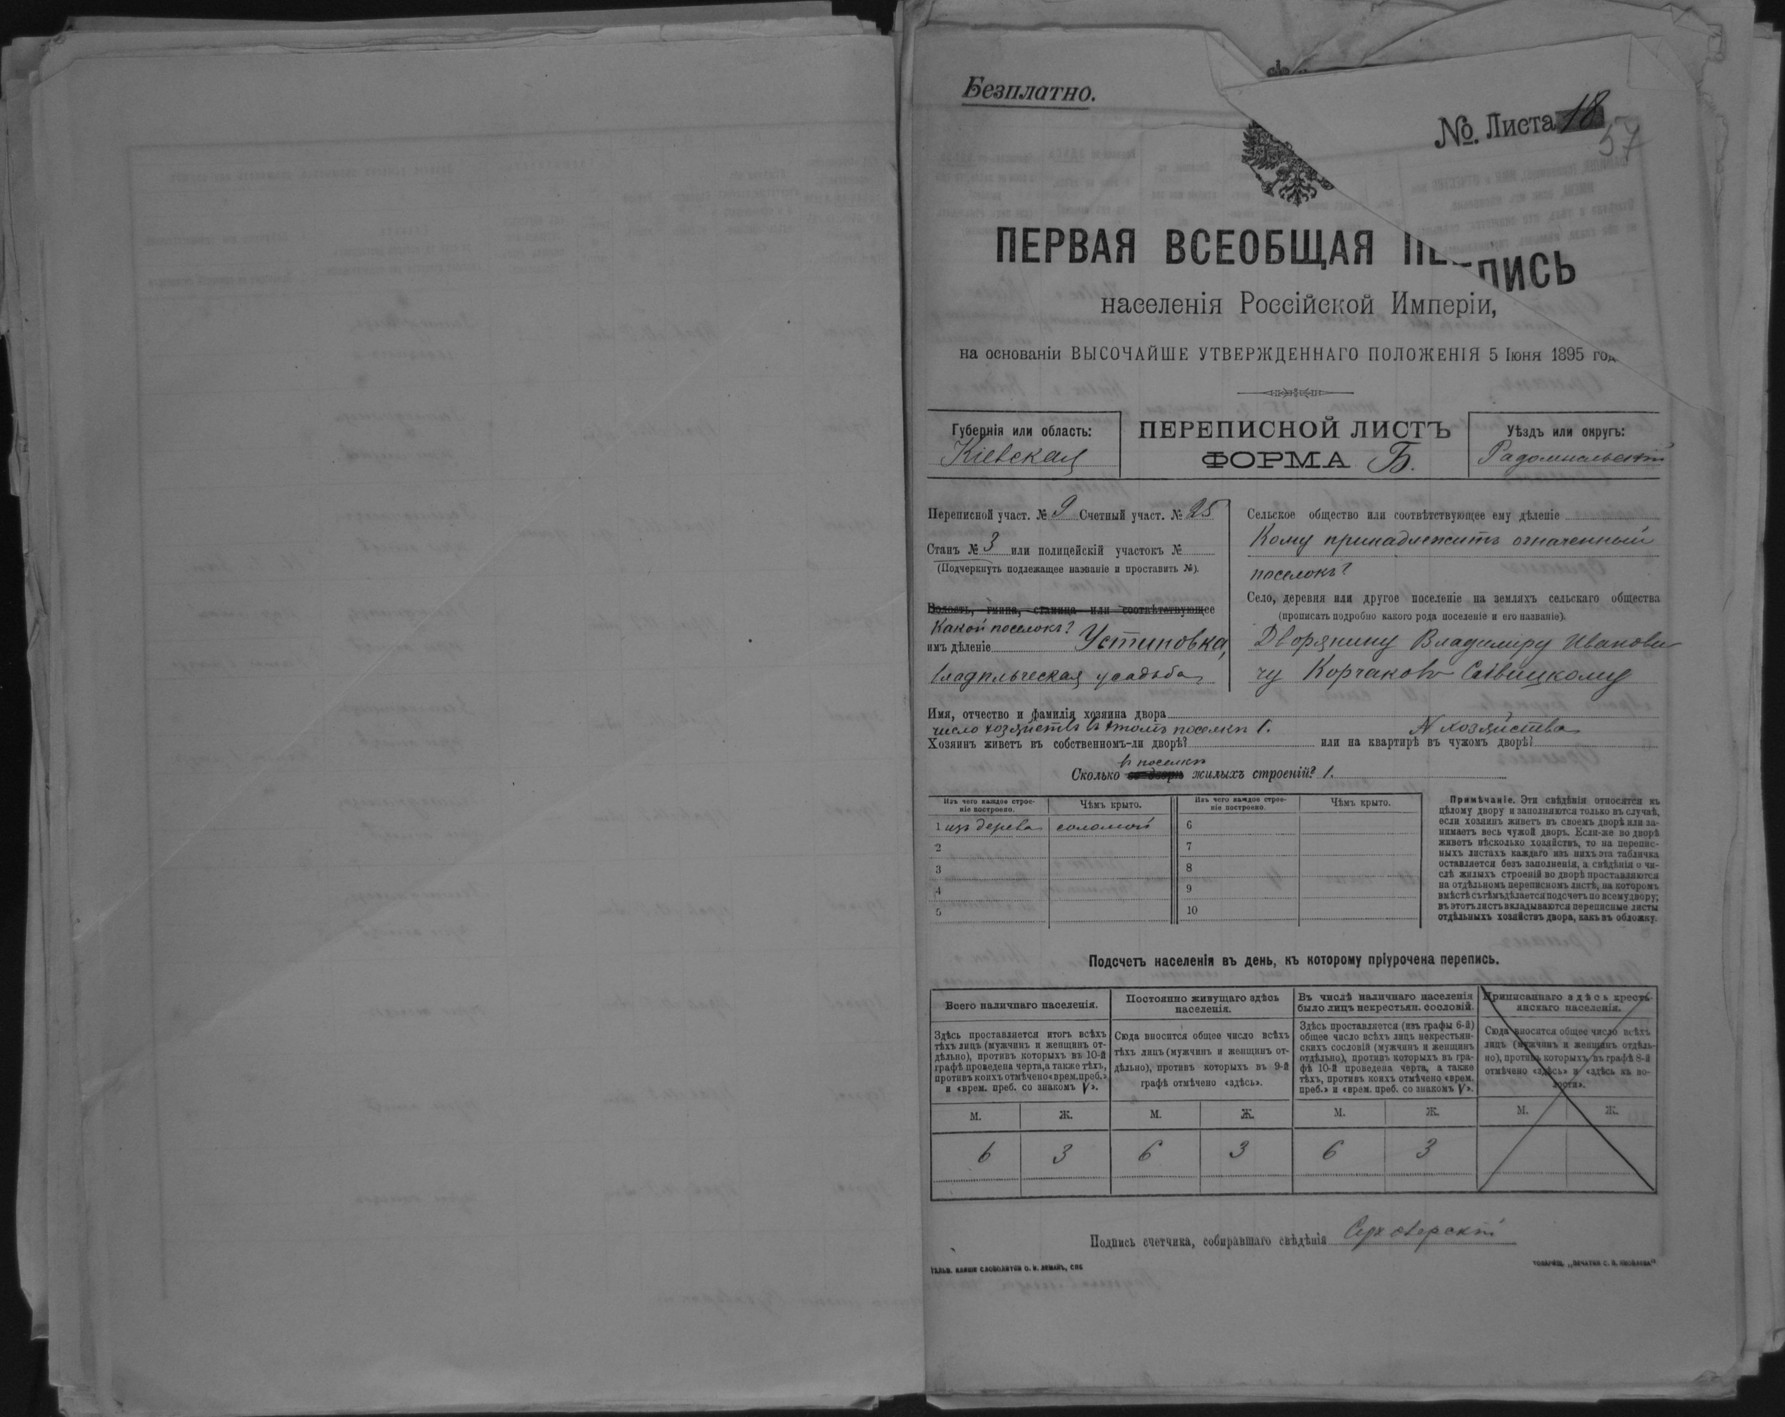 Безплатно.
№. Листа 18
57
ПЕРВАЯ ВСЕОБЩАЯ ПЕ ПИСЬ
населенія Россійской Имперіи,
на основаніи ВЫСОЧАЙШЕ УТВЕРЖДЕННАГО ПОЛОЖЕНІЯ 5 Іюня 1895 год
Губернія или область:
Кіевская
ПЕРЕПИСНОЙ ЛИСТЪ
ФОРМА Б.
Уѣздъ или округъ:
Радомысльскій
Переписной участ. № 9 Счетный участ. № 25
Станъ № 3 или полицейскій участокъ №
(Подчеркнуть подлежащее названіе и проставить №).
Волость, гмина, станица или соотвѣтствующее
Какой поселокъ?
имъ дѣленіе Устиновка,
владѣльческая усадьба
Сельское общество или соотвѣтствующее ему дѣленіе
Кому принадлежитъ означенный
поселокъ?
Село, деревня или другое поселеніе на земляхъ сельскаго общества
(прописать подробно какого рода поселеніе и его названіе).
Дворянину Владиміру Иванови
чу Корчаковъ Сивицкому
Имя, отчество и фамилія хозяина двора
число хозяйствъ въ этомъ поселкѣ 1. N хозяйства
Хозяинъ живетъ въ собственномъ-ли дворѣ? или на квартирѣ въ чужомъ дворѣ?
въ поселкѣ
Сколько во дворѣ жилыхъ строеній? 1.
Изъ чего каждое строеніе построено.
Чѣмъ крыто.
Изъ чего каждое строеніе построено.
Чѣмъ крыто.
1 изъ дерева соломой 6
2 7
3 8
4 9
5 10
Примѣчаніе. Эти свѣдѣнія относятся къ
цѣлому двору и заполняются только въ случаѣ,
если хозяинъ живетъ въ своемъ дворѣ или за-
нимаетъ весь чужой дворъ. Если-же во дворѣ
живетъ нѣсколько хозяйствъ, то на перепис-
ныхъ листахъ каждаго изъ нихъ эта табличка
оставляется безъ заполненія, а свѣдѣнія о чи-
слѣ жилыхъ строеній во дворѣ проставляются
на отдѣльномъ переписномъ листѣ, на которомъ
вмѣстѣ съ тѣмъ дѣлается подсчетъ по всему двору;
въ этотъ листъ вкладываются переписные листы
отдѣльныхъ хозяйствъ двора, какъ въ обложку.
Подсчетъ населенія въ день, къ которому пріурочена перепись.
Всего наличнаго населенія.
Здѣсь проставляется итогъ всѣхъ
тѣхъ лицъ (мужчинъ и женщинъ от-
дѣльно), противъ которыхъ въ 10-й
графѣ проведена черта, а также тѣхъ,
противъ коихъ отмѣчено «врем. преб.»
и «врем. преб. со знакомъ V».
М. Ж.
6 3
Постоянно живущаго здѣсь
населенія.
Сюда вносится общее число всѣхъ
тѣхъ лицъ (мужчинъ и женщинъ от-
дѣльно), противъ которыхъ въ 9-й
графѣ отмѣчено «здѣсь».
М. Ж.
6 3
Въ числѣ наличнаго населенія
было лицъ некрестьян. сословій.
Здѣсь проставляется (изъ графы 6-й)
общее число всѣхъ лицъ некрестьян-
скихъ сословій (мужчинъ и женщинъ
отдѣльно), противъ которыхъ въ гра-
фѣ 10-й проведена черта, а также
тѣхъ, противъ коихъ отмѣчено «врем.
преб.» и «врем. преб. со знакомъ V».
М. Ж.
6 3
Приписаннаго здѣсь кресть-
янскаго населенія.
Сюда вносится общее число всѣхъ
лицъ (мужчинъ и женщинъ отдѣль-
но), противъ которыхъ въ графѣ 8-й
отмѣчено «здѣсь» и «здѣсь въ во-
лости».
М. Ж.
Подпись счетчика, собиравшаго свѣдѣнія